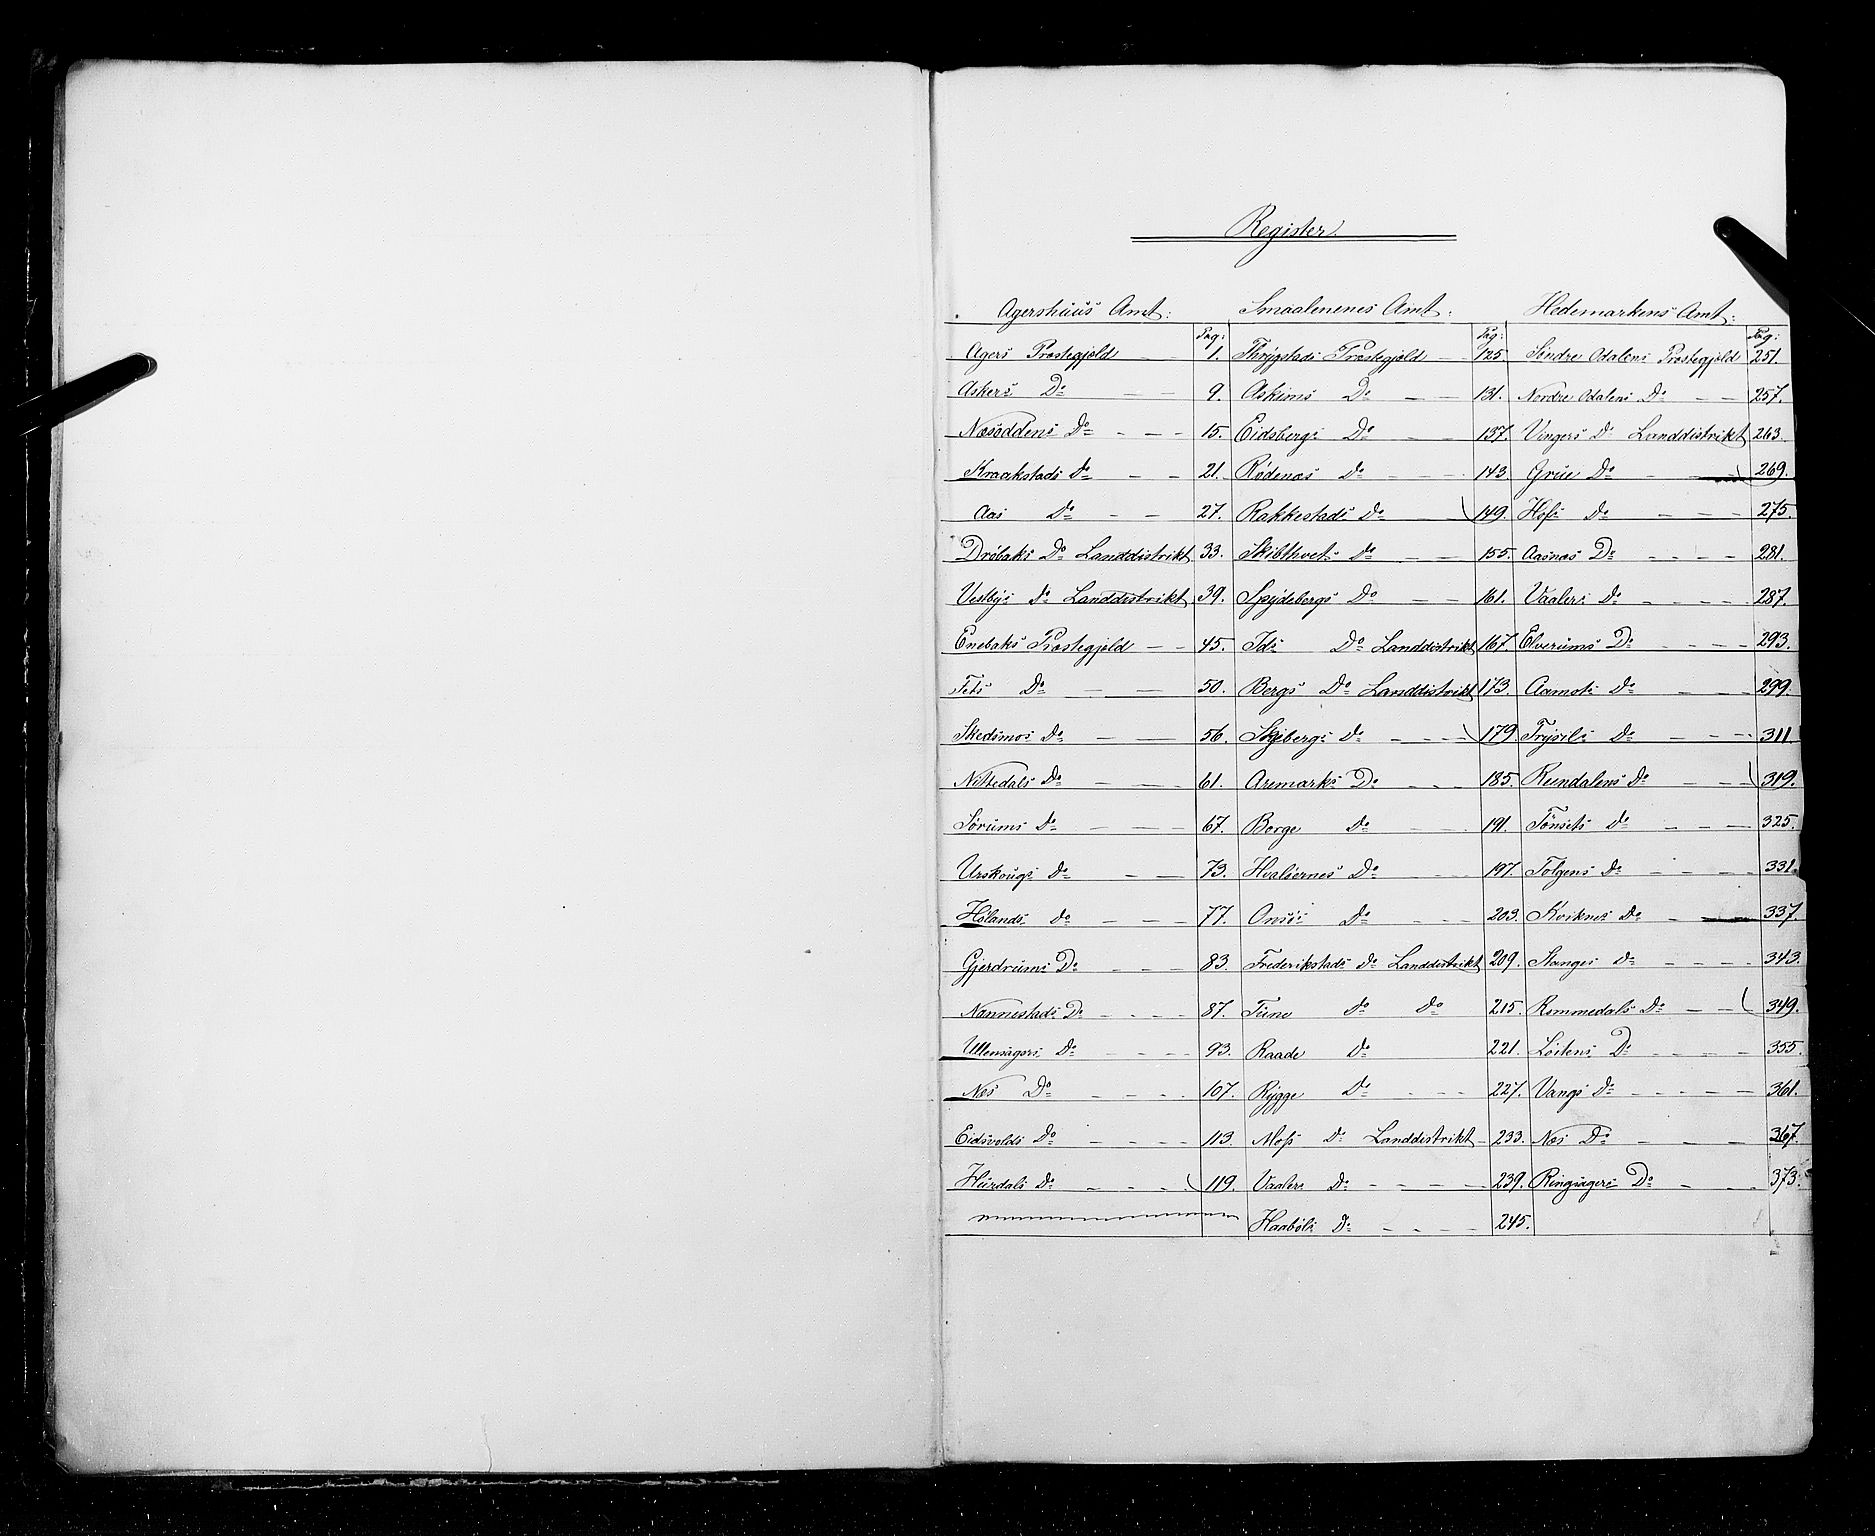 Register.
Agershuus Amt: Smaalenenes Amt: Hedemarkens Amt:
Pag: Pag: Pag:
Agers Præstegjæld — 1. Thrygstads Præstegjæld — 125. Söndre Odalens Præstegjæld 251.
Askers Do — — 9. Askims Do — — 131. Nordre Odalens Do — — 257.
Næsoddens Do — — — 15. Eidsbergs Do — — 137. Vingers Do Landdistrikt 263.
Kraakstads do — — 21. Rødenæs do — — — 143. Grue Do — — 269.
Aas do — — 27. Rakkestads do — — 149. Hofs do — — — 275.
Dröbaks Do Landdistrikt 33. Skibthvets do — — 155. Aasnæs Do — — — — 281.
Vestbys do Landdistrikt 39. Spydebergs Do — — 161. Vaalers do — — — — 287.
Enebaks Præstegjæld — — 45. Ids Do Landdistrikt 167. Elverums Do — — — — 293.
Fets do — — 50. Bergs Do Landdistrikt 173. Aamots do — — — 299.
Skedsmos do — — 56. Skjebergs do — — — 179. Trysils do — — — 311.
Nittedals do — — 61. Aremarks Do — — — 185. Rendalens do — — — 319.
Sörums do — — — 67. Borge do — — 191. Tönsets do — — — 325.
Urskougs do — — 73. Hvalöernes do — — — 197. Tolgens do — — — — 331.
Hölands do — — — 77. Onsös do — — 203. Kviknes do — — 337.
Gjerdrums Do — — — 83. Frederikstads do Landdistrikt 209. Stanges do — — — — 343.
Nannestads Do — — — — 87. Tune do do 215. Rommedals do — — 349.
Ullensagers do — — — — 93. Raade do 221. Löitens Do — — — — 355.
Næs Do — — — — 107. Rygge do — — — 227. Vangs do — — — — — 361.
Eidsvolds do — — — — 113. Moss do Landdistrikt 233. Næs Do — — — 367.
Hurdals do — — — — 119. Vaalers do — — — — 239. Ringsagers Do — — — 373.
Haaböls do — — — — 245.